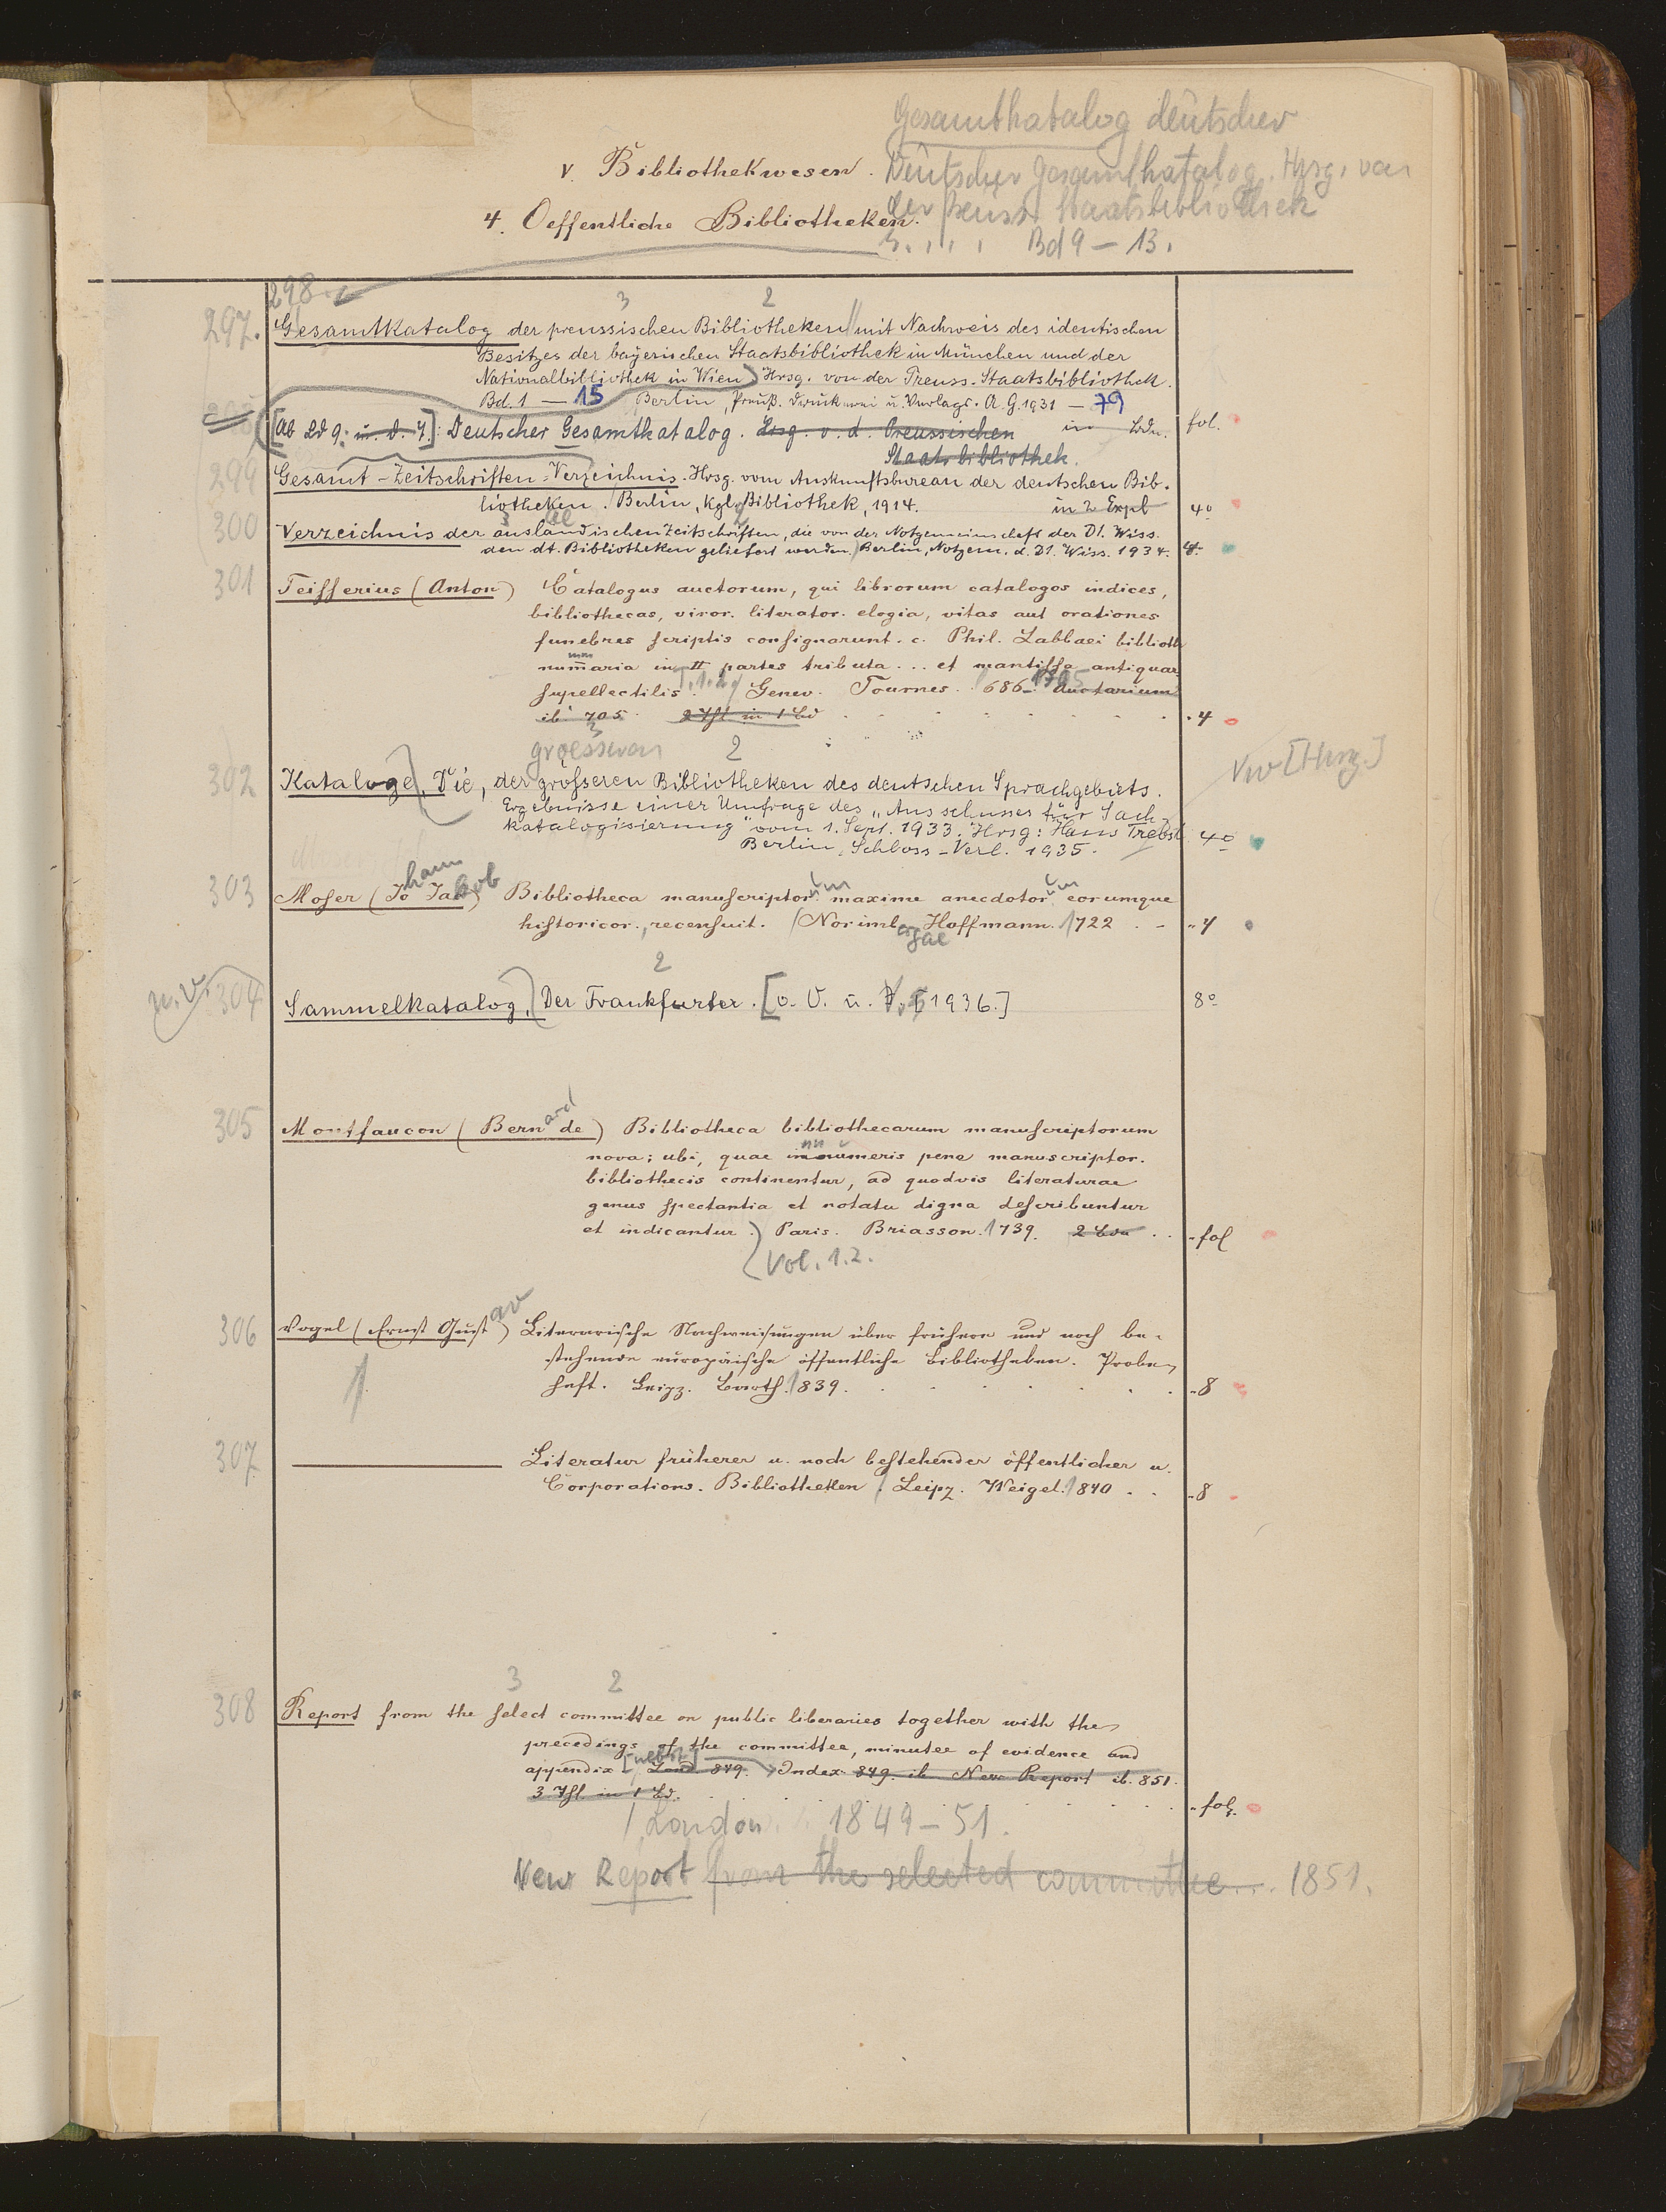 Gesamtkatalog deutscher
V. Bibliothekwesen.
Deutscher Gesamtkatalog. Hrsg. von
der Preuss. Staatsbibliothek
4. Oeffentliche Bibliotheken.
Bd 9 – 13.
298.
3 2
297. Gesamtkatalog der preussischen Bibliotheken mit Nachweis des identischen
Besitzes der bayerischen Staatsbibliothek in München und der
Nationalbibliothek in Wien) Hrsg. von der Preuss. Staatsbibliothek.
Bd. 1 – 15 Berlin, Preuß. Druckerei u. Verlags. A. G. 1931 – 79
[Ab Bd 9: u. d. T.]: Deutscher Gesamtkatalog. Hrsg. v. d. Preussischen in Bdn. fol.
Staatsbibliothek.
299 Gesamt-Zeitschriften-Verzeichnis. Hrsg. vom Auskunftsbureau der deutschen Bib-
liotheken. Berlin, Kgl. Bibliothek, 1914. in 2 Expl 4o
3 ae 2
300 Verzeichnis der ausländischen Zeitschriften, die von der Notgemeinschaft der Dt. Wiss.
den dt. Bibliotheken geliefert werden. Berlin, Notgem. d. Dt. Wiss. 1934. 4.
301 Teisserius (Anton) Catalogus auctorum, qui librorum catalogos indices,
bibliothecas, viror. literator. elogia, vitas aut orationes
funebres scriptis consignarunt. c. Phil. Labbaei biblioth
mm
num̅aria in II partes tributa ... et mantissa antiquae
T. 1. 2. 1705
supellectilis. Genev. Tournes. 1686– Auctarium
ib. 705. 2 Thl in 1 Bd . 4
3
groesseren 2
302 Kataloge, Die, der größeren Bibliotheken des deutschen Sprachgebiets. Vw [Hrsg.]
Ergebnisse einer Umfrage des „Ausschusses für Sach-
katalogisierung" vom 1. Sept. 1933. Hrsg: Hans Trebst 4o
Berlin, Schloss-Verl. 1935.
hann kob um um
303 Moser (Jo Jac) Bibliotheca manuscriptor. maxime anecdotor. eorumque
historicor., recensuit. Norimb. Hoffmann. 1722 . - 4
ergae
2
n.v. 304 Sammelkatalog, Der Frankfurter. [o. O. u. V. 1936.] 8o
ard
305 Montfaucon (Bern de) Bibliotheca bibliothecarum manuscriptorum
nn u
nova; ubi, quae innumeris pene manuscriptor.
bibliothecis continentur, ad quodvis literaturae
genus spectantia et notatu digna describuntur
et indicantur. Paris. Briasson. 1739. 2 Bde . . fol
Vol. 1.2.
av
306 Vogel (Ernst Gust) Literarische Nachweisungen über frühere und noch be-
stehende europäische öffentliche Bibliotheken. Probe-
heft. Leipz. Barth. 1839. . 8
307 Literatur früherer u. noch bestehender öffentlicher u.
Corporations. Bibliotheken. Leipz. Weigel. 1840 . . 8
3 2
308 Report from the select committee on public liberaries together with the
precedings of the committee, minutee of evidence and
[nebst]
appendix Lond. 849. Index 849. ib New Report ib. 851.
3 Thl in 1 Bd. . fol.
London 1849–51.
New Report from the selected committee... 1851.